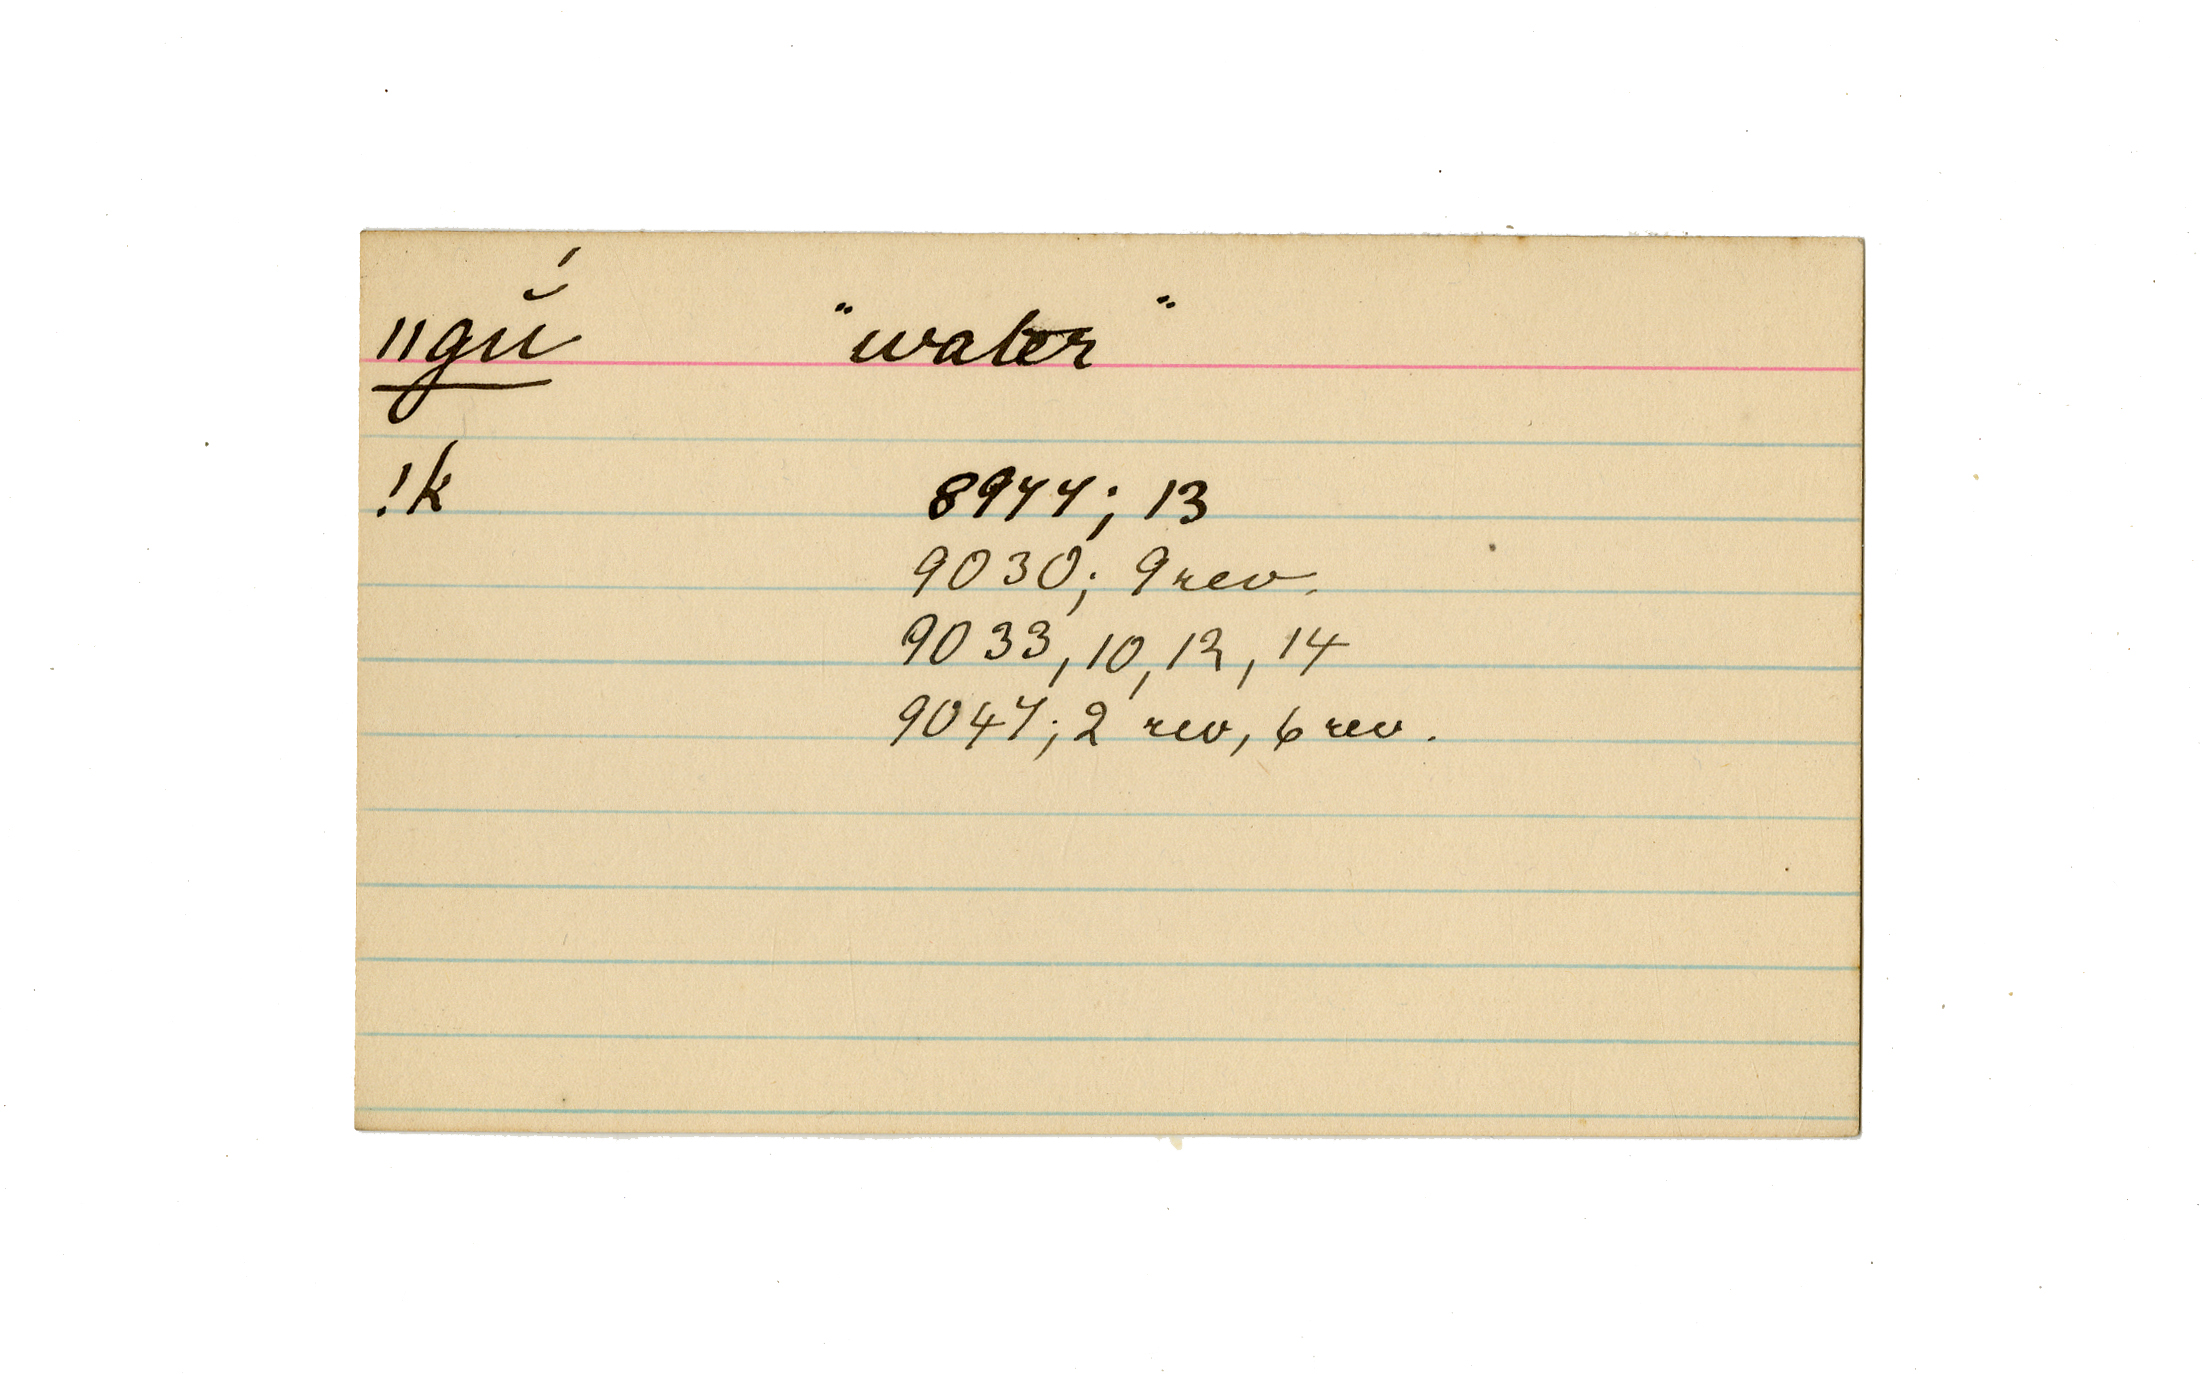 ||gŭ́ "water"
!k 8977; 13
9030; 9 rev.
9033, 10, 12, 14
9047; 2 rev, 6 rev.